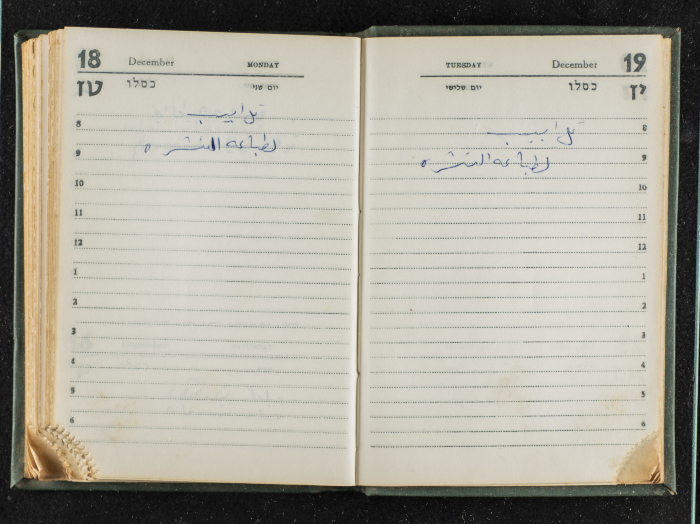 18 December MONDAY
טז כסלו יום שני
تل ابيب
لطباعة النشره
8
9
10
11
12
1
2
3
4
5
6
TUESDAY December 19
יום שלישי כסלו יז
تل ابيب
لطباعة النشره
8
9
10
11
12
1
2
3
4
5
6